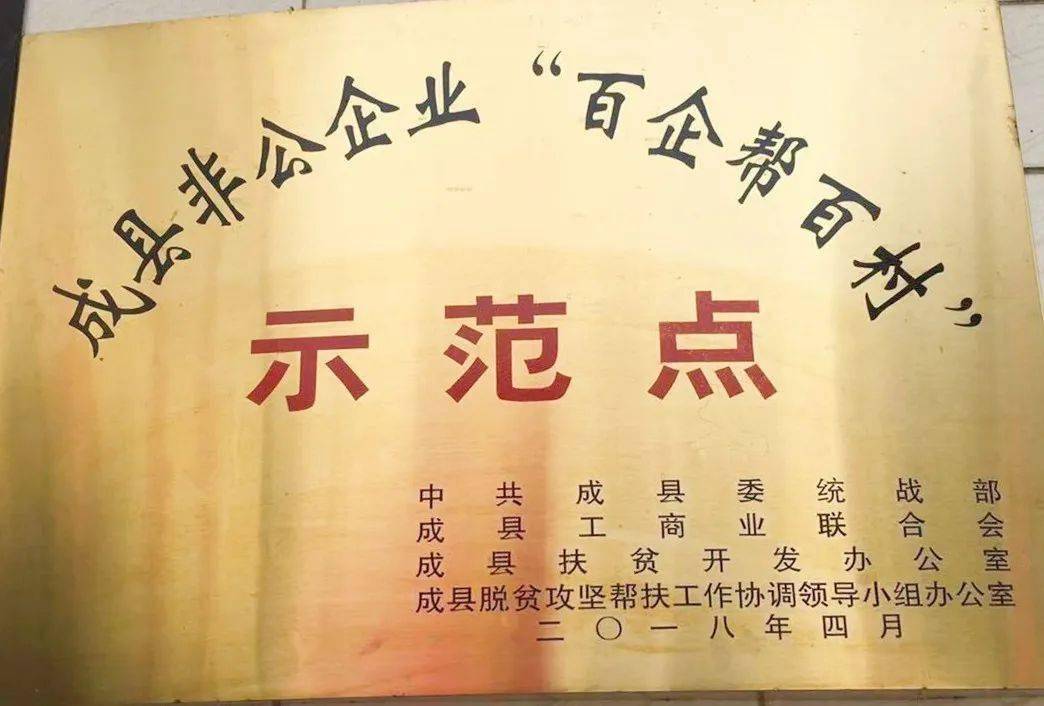 成县非公企业“百企帮百村”
示范点
中共成县委统战部
成县工商业联合会
成县扶贫开发办公室
成县脱贫攻坚帮扶工作协调领导小组办公室
二〇一八年四月